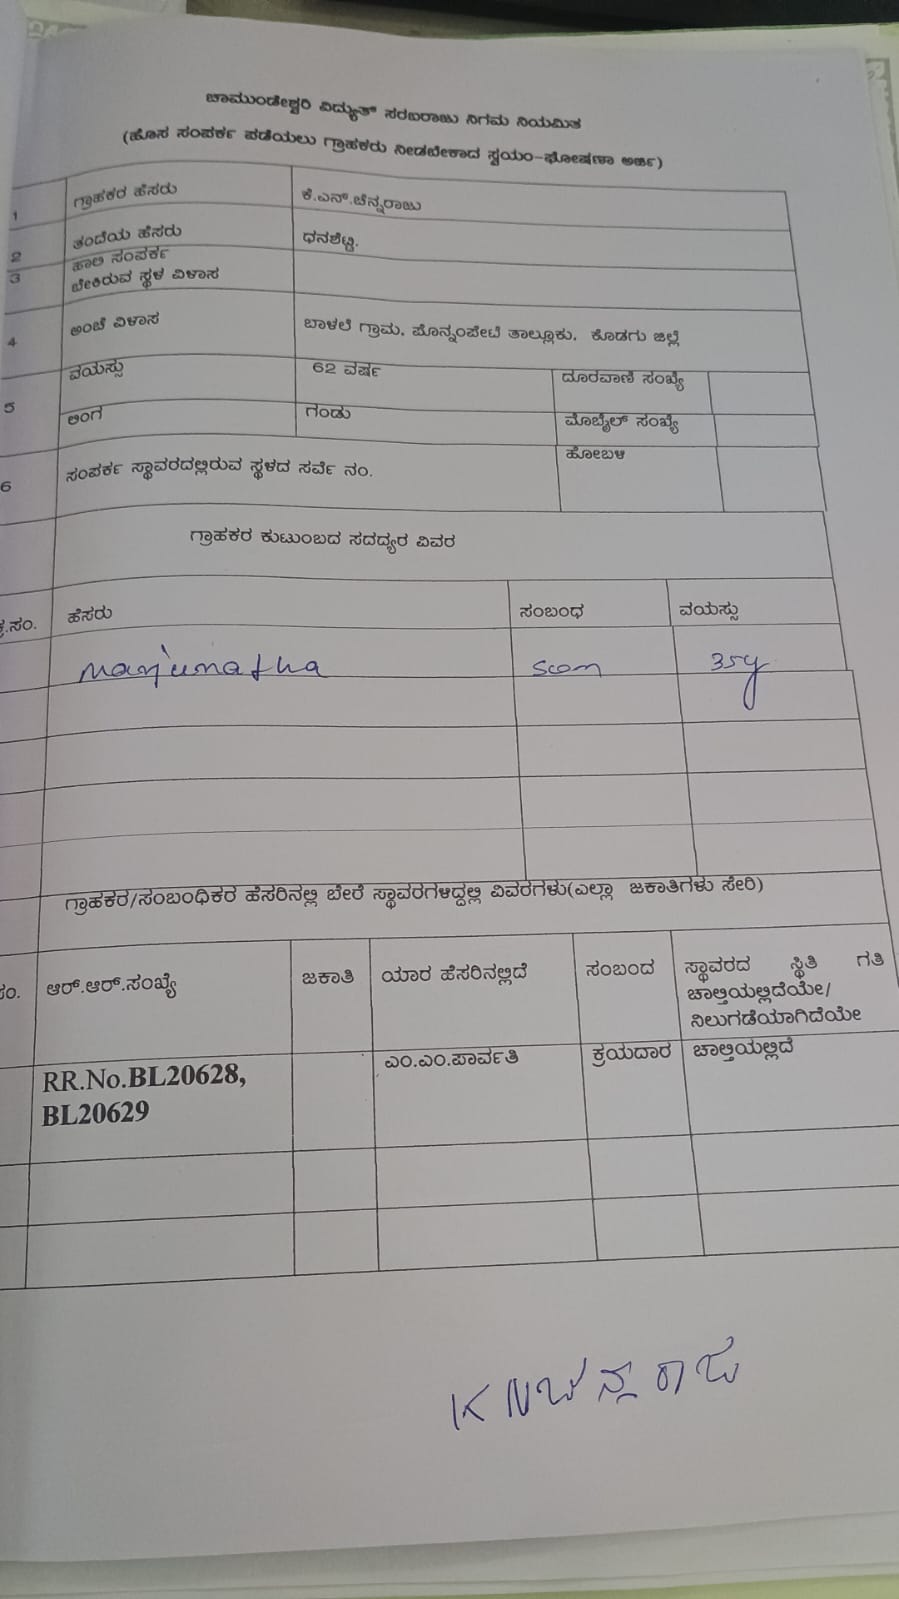 ಚಾಮುಂಡೇಶ್ವರಿ ವಿದ್ಯುತ್ ಸರಬರಾಜು ನಿಗಮ ನಿಯಮಿತ
(ಹೊಸ ಸಂಪರ್ಕ ಪಡೆಯಲು ಗ್ರಾಹಕರು ನೀಡಬೇಕಾದ ಸ್ವಯಂ-ಘೋಷಣಾ ಅರ್ಜಿ)
1 ಗ್ರಾಹಕರ ಹೆಸರು ಕೆ.ಎನ್.ಚೆನ್ನರಾಜು
2 ತಂದೆಯ ಹೆಸರು ಧನಶೆಟ್ಟಿ.
3 ಹಾಲಿ ಸಂಪರ್ಕ
ಬೇಕಿರುವ ಸ್ಥಳ ವಿಳಾಸ
4 ಅಂಚೆ ವಿಳಾಸ ಬಾಳಲೆ ಗ್ರಾಮ, ಪೊನ್ನಂಪೇಟೆ ತಾಲ್ಲೂಕು, ಕೊಡಗು ಜಿಲ್ಲೆ
5 ವಯಸ್ಸು 62 ವರ್ಷ ದೂರವಾಣಿ ಸಂಖ್ಯೆ
ಲಿಂಗ ಗಂಡು ಮೊಬೈಲ್ ಸಂಖ್ಯೆ
6 ಸಂಪರ್ಕ ಸ್ಥಾವರದಲ್ಲಿರುವ ಸ್ಥಳದ ಸರ್ವೆ ನಂ. ಹೋಬಳಿ
ಗ್ರಾಹಕರ ಕುಟುಂಬದ ಸದದ್ಯರ ವಿವರ
ಕ್ರ.ಸಂ. ಹೆಸರು ಸಂಬಂಧ ವಯಸ್ಸು
manjunatha son 35y
ಗ್ರಾಹಕರ/ಸಂಬಂಧಿಕರ ಹೆಸರಿನಲ್ಲಿ ಬೇರೆ ಸ್ಥಾವರಗಳಿದ್ದಲ್ಲಿ ವಿವರಗಳು(ಎಲ್ಲಾ ಜಕಾತಿಗಳು ಸೇರಿ)
ಸಂ. ಆರ್.ಆರ್.ಸಂಖ್ಯೆ ಜಕಾತಿ ಯಾರ ಹೆಸರಿನಲ್ಲಿದೆ ಸಂಬಂದ ಸ್ಥಾವರದ ಸ್ಥಿತಿ ಗತಿ
ಚಾಲ್ತಿಯಲ್ಲಿದೆಯೇ/
ನಿಲುಗಡೆಯಾಗಿದೆಯೇ
RR.No.BL20628, ಎಂ.ಎಂ.ಪಾರ್ವತಿ ಕ್ರಯದಾರ ಚಾಲ್ತಿಯಲ್ಲಿದೆ
BL20629
K N ಚೆನ್ನರಾಜು